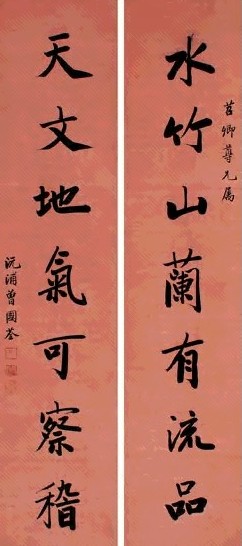 苕卿尊兄屬
水竹山蘭有流品
天文地氣可察稽
沅浦曾國荃